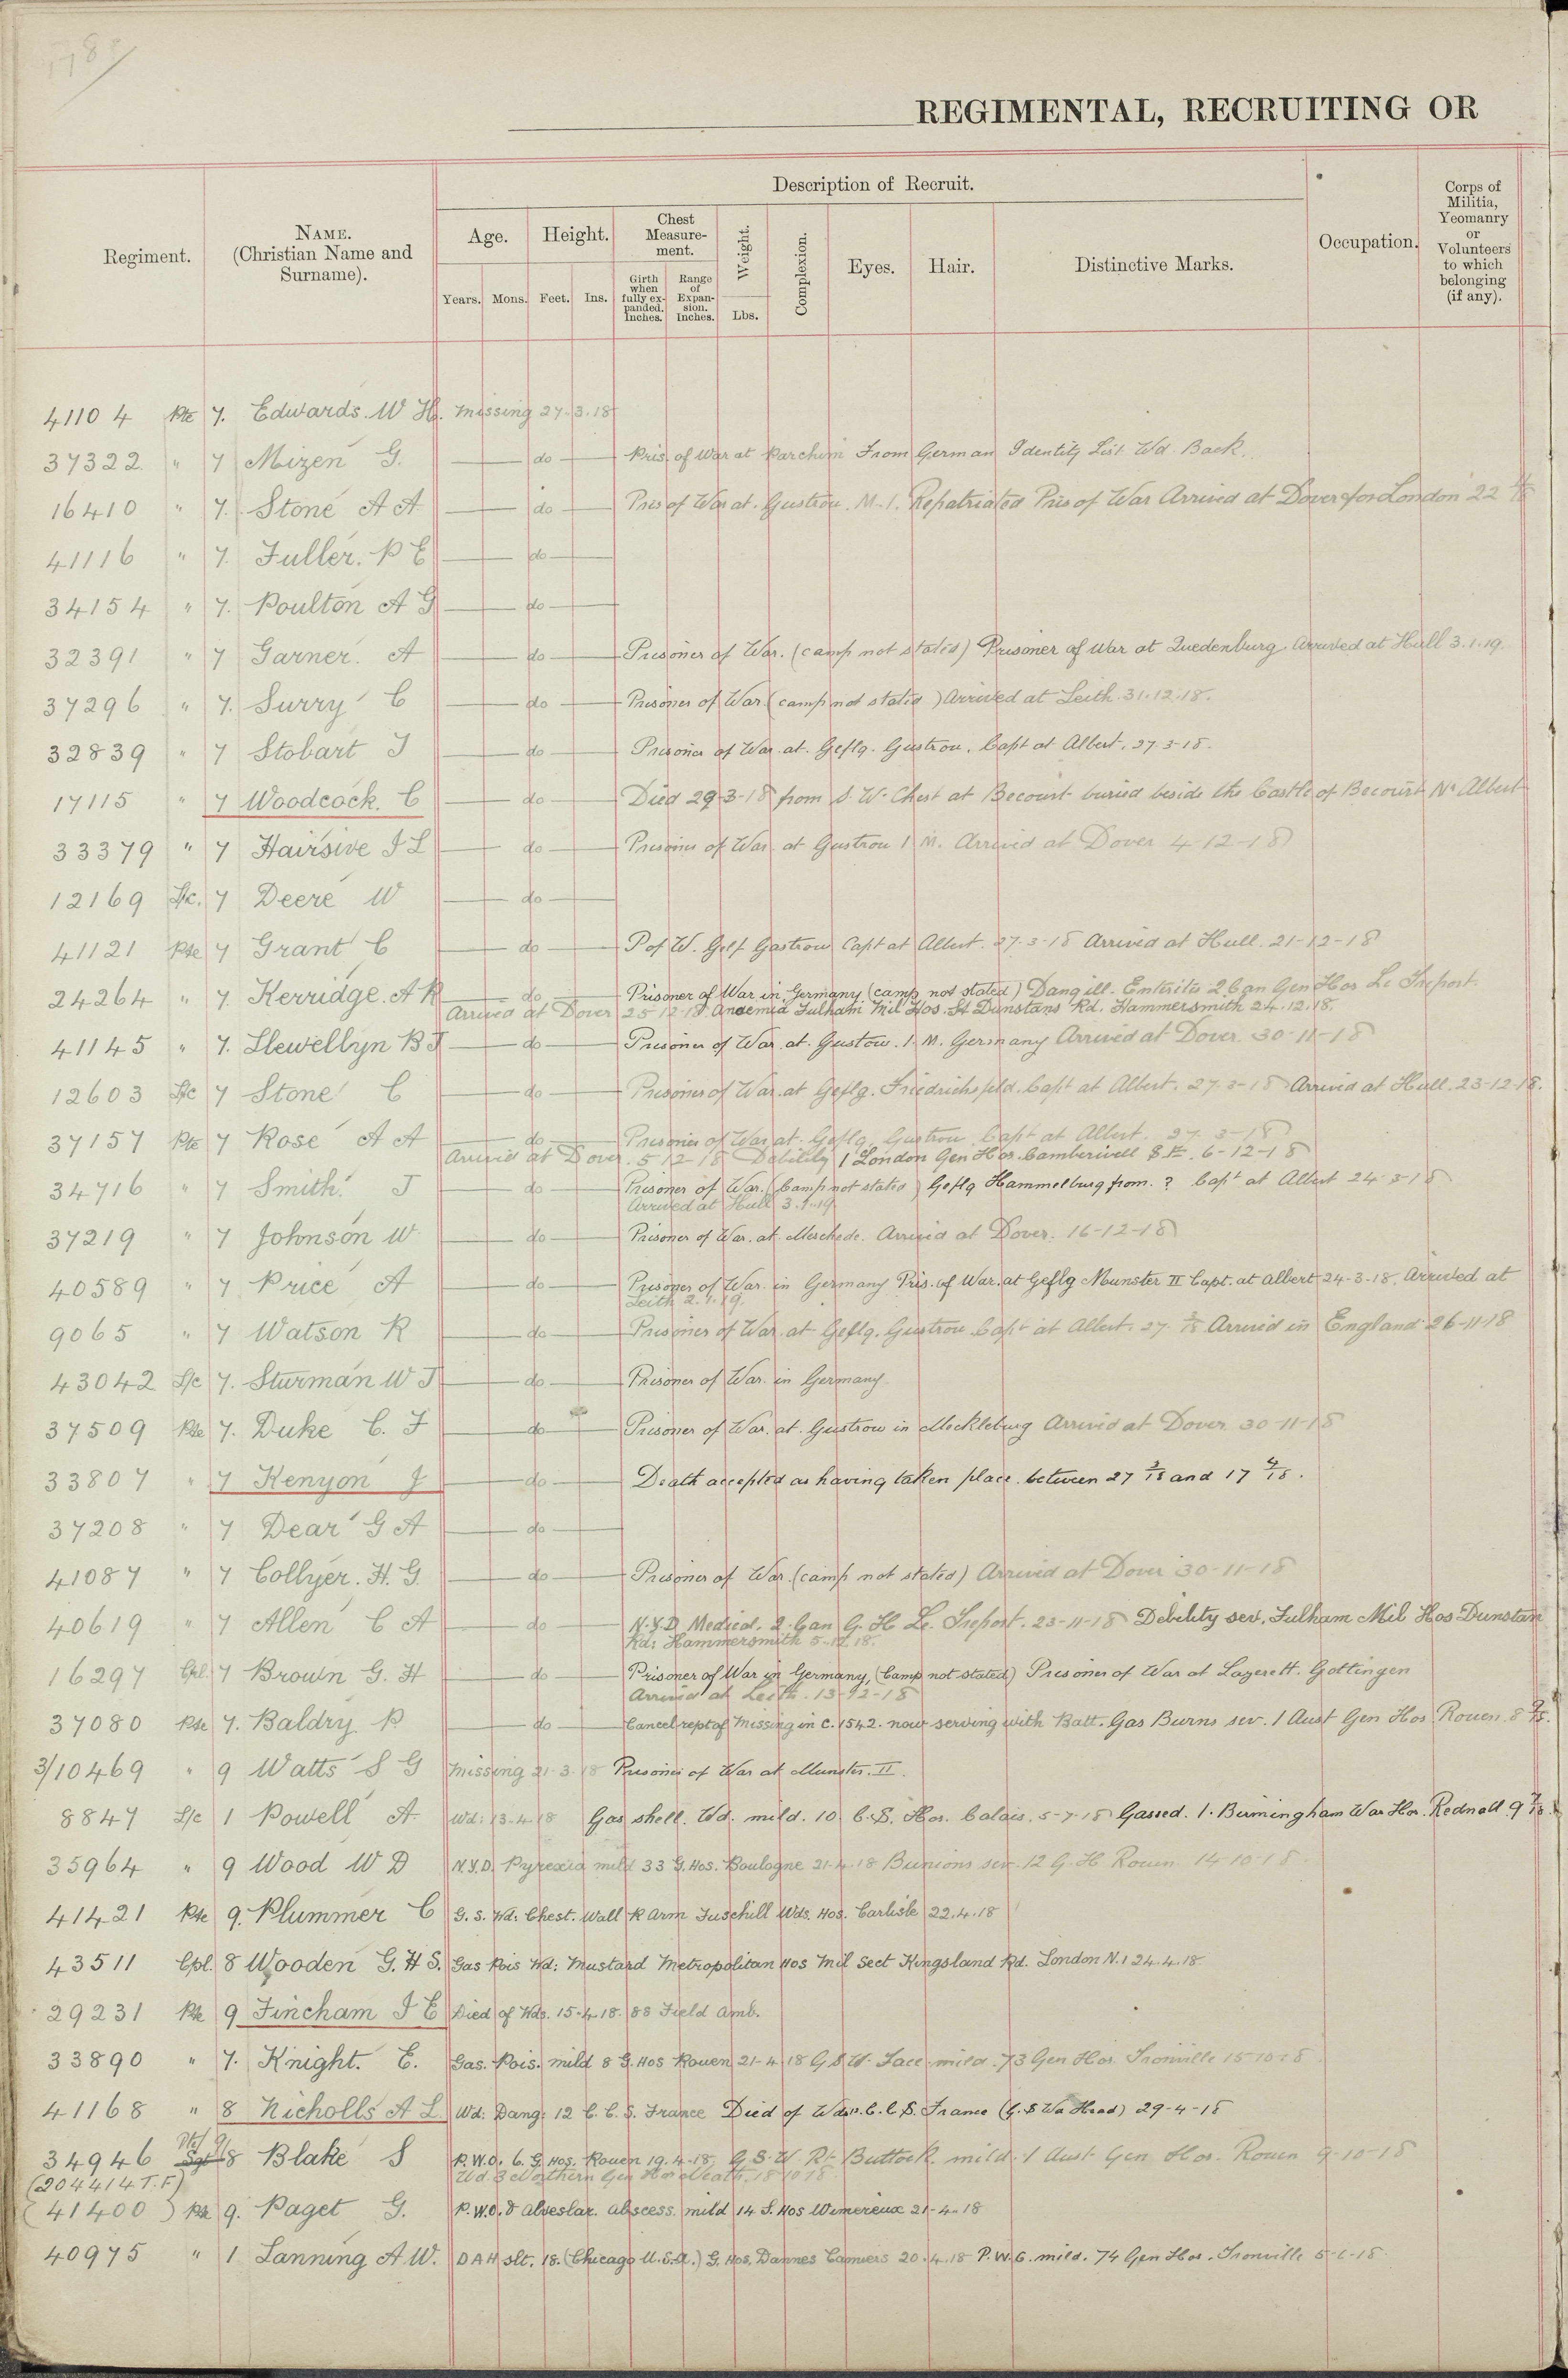 REGIMENTAL, RECRUITING OR
Regiment.
NAME.
(Christian Name and
Surname).
Description of Recruit.
Age.
Height.
Chest
Measure-
ment.
Weight.
Complexion.
Eyes.
Hair.
Distinctive Marks.
Occupation.
Corps of
Militia,
Yeomanry
or
Volunteers
to which
belonging
(if any).
Years.
Mons.
Feet.
Ins.
Girth
when
fully ex-
panded.
Inches.
Range
of
Expan-
sion.
Inches.
Lbs.
41104 Pte 7. Edwards. W H. Missing 27.3.18
37322 " 7 Mizen G. do Pris. of War at Parchim From German Identity List Wd. Back.
16410 " 7. Stone A A do Pris of War at. Gustrow. M.1. Repatriated Pris of War Arrived at Dover for London 22
41116 " 7. Fuller. P E do
34154 " 7. Poulton A G do
32391 " 7 Garner. A do Prisoner of War. (camp not stated) Prisoner of War at Quedenburg. Arrived at Hull 3.1.19.
37296 " 7. Surry C do Prisoner of War (camp not stated) Arrived at Leith. 31.12.18.
32839 " 7 Stobart J do Prisoner of War. at. Geflg. Gustrow. Capt at Albert. 27-3-18.
17115 " 7 Woodcock. C do Died 29-3-18 from S. W. Chest at Becourt buried beside the Castle of Becourt Nr Albert
33379 " 7 Hairsive J L do Prisoner of War at Gustrow 1 M. Arrived at Dover 4-12-18
12169 L/c. 7 Deere W do
41121 Pte 7 Grant C do P of W. Gelf Gastrow Capt at Albert. 27-3-18 Arrived at Hull. 21-12-18
24264 " 7. Kerridge. A R do Prisoner of War in Germany (camp not stated) Dang ill. Enteritis 2 Can Gen Hos Le Treport.
Arrived at Dover 25-12-18. Anaemia Fulham Mil Hos. St Dunstans Rd. Hammersmith 24.12.18.
41145 " 7. Llewellyn B J do Prisoner of War. at. Gustow. 1. M. Germany Arrived at Dover. 30-11-18
12603 L/c 7 Stone C do Prisoner of War. at Geflg. Friedrichsfeld. Capt at Albert. 27-3-18 Arrived at Hull. 23-12-18.
37157 Pte 7 Rose A A do Prisoner of War at. Geflg. Gustrow Capt at Albert. 27-3-18
Arrived at Dover. 5-12-18 Debility 1 London Gen Hos. Camberwell S.E. 6-12-18
34716 " 7 Smith. J do Prisoner of War. (Camp not stated) Geflg Hammelburg from. ? Capt at Albert 24-3-18
Arrived at Hull 3.1.19
37219 " 7 Johnson W do Prisoner of War. at Meschede. Arrived at Dover. 16-12-18
40589 " 7 Price A do Prisoner of War. in Germany Pris. of War. at Geflg Munster II Capt. at Albert 24-3-18. Arrived at
Leith 2.1.19.
9065 " 7 Watson R do Prisoner of War. at Geflg. Gustrow Capt at Albert. 27. 3/18 Arrived in England 26-11-18
43042 L/c 7. Sturman W J do Prisoner of War. in Germany.
37509 Pte 7. Duke C. F do Prisoner of War. at. Gustrow in Mockleburg Arrived at Dover 30-11-18
33807 " 7 Kenyon J do Death accepted as having taken place between 27 3/18 and 17 4/18.
37208 " 7 Dear G A do
41087 " 7 Collyer. H. G. do Prisoner of War. (camp not stated) Arrived at Dover 30-11-18
40619 " 7 Allen C A do N.Y.D. Medical. 2. Can G. H Le. Treport. 23-11-18 Debility sev. Fulham Mil Hos Dunstan
Rd: Hammersmith 5-12.18.
16297 Cpl. 7 Brown G. H do Prisoner of War in Germany, (Camp not stated) Prisoner of War at Lazerett. Gottingen
Arrived at Leith. 13-12-18
37080 Pte 7. Baldry P do Cancel rept of Missing in C. 1542. now serving with Batt. Gas Burns sev. 1 Aust Gen Hos Rouen. 8
3/10469 " 9 Watts S G Missing 21.3.18 Prisoner of War at Munster. II.
8847 L/c 1 Powell A. Wd: 13.4.18 Gas shell. Wd. mild. 10 C.S. Hos. Calais. 5-7-18 Gassed. 1. Birmingham War Hos. Rednall. 9 7/18.
35964 " 9 Wood W D N.Y.D. Pyrexia mild 33 G. Hos. Boulogne 21.4.18 Bunions sev. 12 G. H Rouen 14-10-18.
41421 Pte 9. Plummer C G.S. Wd: Chest. Wall R Arm Fuschill Wds. Hos. Carlisle 22.4.18
43511 Cpl. 8 Wooden G. H S. Gas Pois Wd: Mustard Metropolitan Hos Mil Sect Kingsland Rd. London N.1 24.4.18.
29231 Pte 9 Fincham J E Died of Wds. 15.4.18. 88 Field Amb.
33890 " 7. Knight. E. Gas. Pois. mild 8 G. Hos Rouen 21-4-18 G S W. Face mild. 73 Gen Hos. Tronville 15-10-18
41168 " 8 Nicholls A L Wd: Dang: 12 C. C. S. France Died of Wds. C.C.S. France (G.S Wd Head) 29-4-18
34946 Sgt Pte/ 9/8 Blake S P.W.O. 6. G. Hos. Rouen 19.4.18 G.S.W. Rt Buttock. mild. 1 Aust Gen Hos. Rouen 9-10-18
(204414 T.F) Wd. 3 Northern Gen Hos 18.10.18
(41400) Pte 9. Paget G. P.W.O. & Alveolar. Abscess. mild 14 S. Hos Wimereux 21-4-18
40975 " 1 Lanning A W. DAH slt. 18. (Chicago U.S.A.) G. Hos. Dannes Camiers 20.4.18 P.W.G. mild. 74 Gen Hos. Tronville 5-6-18.